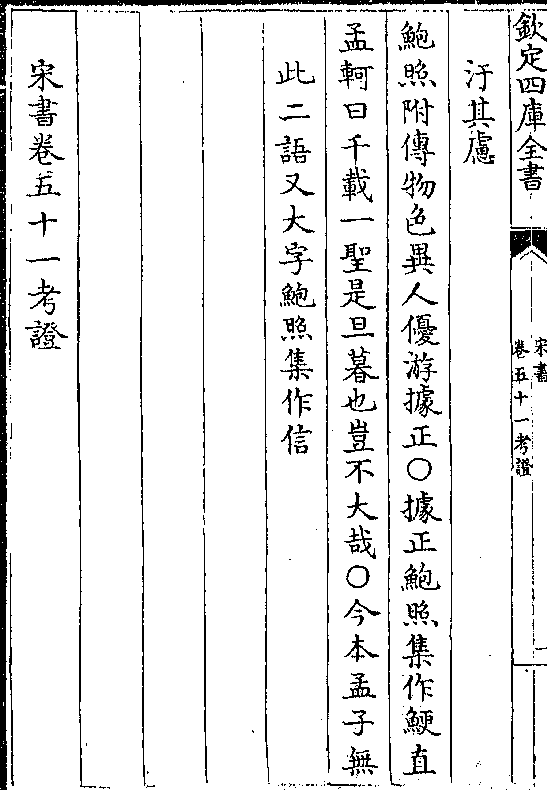 欽定四庫全書
宋書
卷五十一考證
汙其慮
鮑照附傳物色異人優游據正○據正鮑照集作鯁直
孟軻曰千載一聖是旦暮也豈不大哉○今本孟子無
此二語又大字鮑照集作信
宋書卷五十一考證